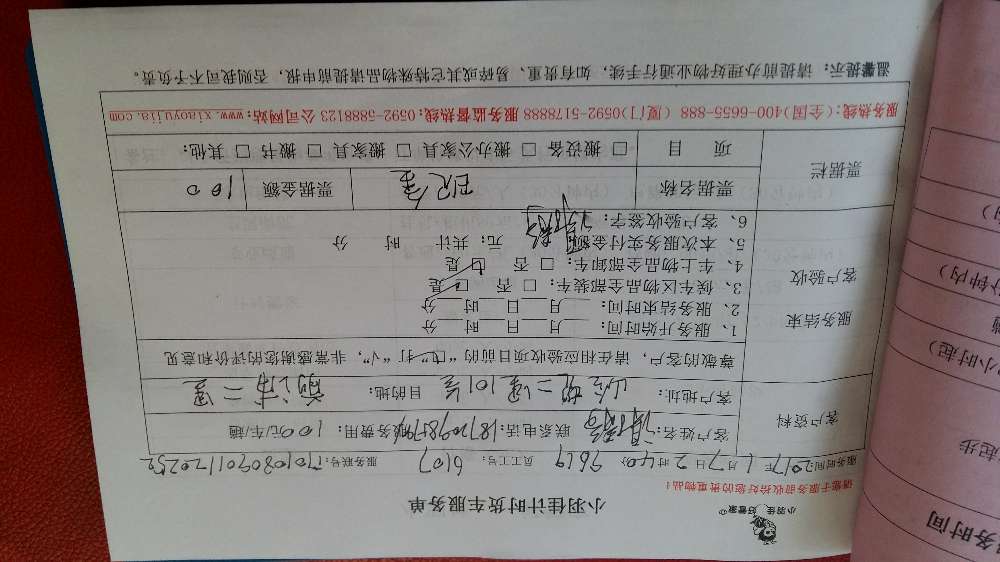 小羽佳 好管家
小羽佳计时货车服务单
请您于服务前收拾好您的贵重物品！
服务时间：2017年1月7日2时40分 9619 员工工号：6107 服务联号：
客户资料
客户姓名： 联系电话： 服务费用：100元/车/趟
客户地址：二里101号 目的地：二里
尊敬的客户，请在相应验收项目前的“口”打“√”，非常感谢您的评价和意见
服务结束
客户验收
1、服务开始时间：___月___日___时___分
2、服务结束时间：___月___日___时___分
3、候车区物品全部装车：□ 否 □ 是
4、车上物品全部卸车：□ 否 □ 是
5、本次服务实付金额 元；共计 时 分
6、客户验收签字：
票据栏
票据名称 现金 票据金额 100
项 目 □ 搬设备 □ 搬办公家具 □ 搬家具 □ 搬书 □ 其他：
服务热线：(全国)400-6655-888 (厦门)0592-5178888 服务监督热线：0592-5888123 公司网站：www.xiaoyujia.com
温馨提示：请提前办理好物业通行手续，如有贵重、易碎或其它特殊物品请提前申报，否则我司不予负责。
服务时间
起步
小时起)
分钟内)